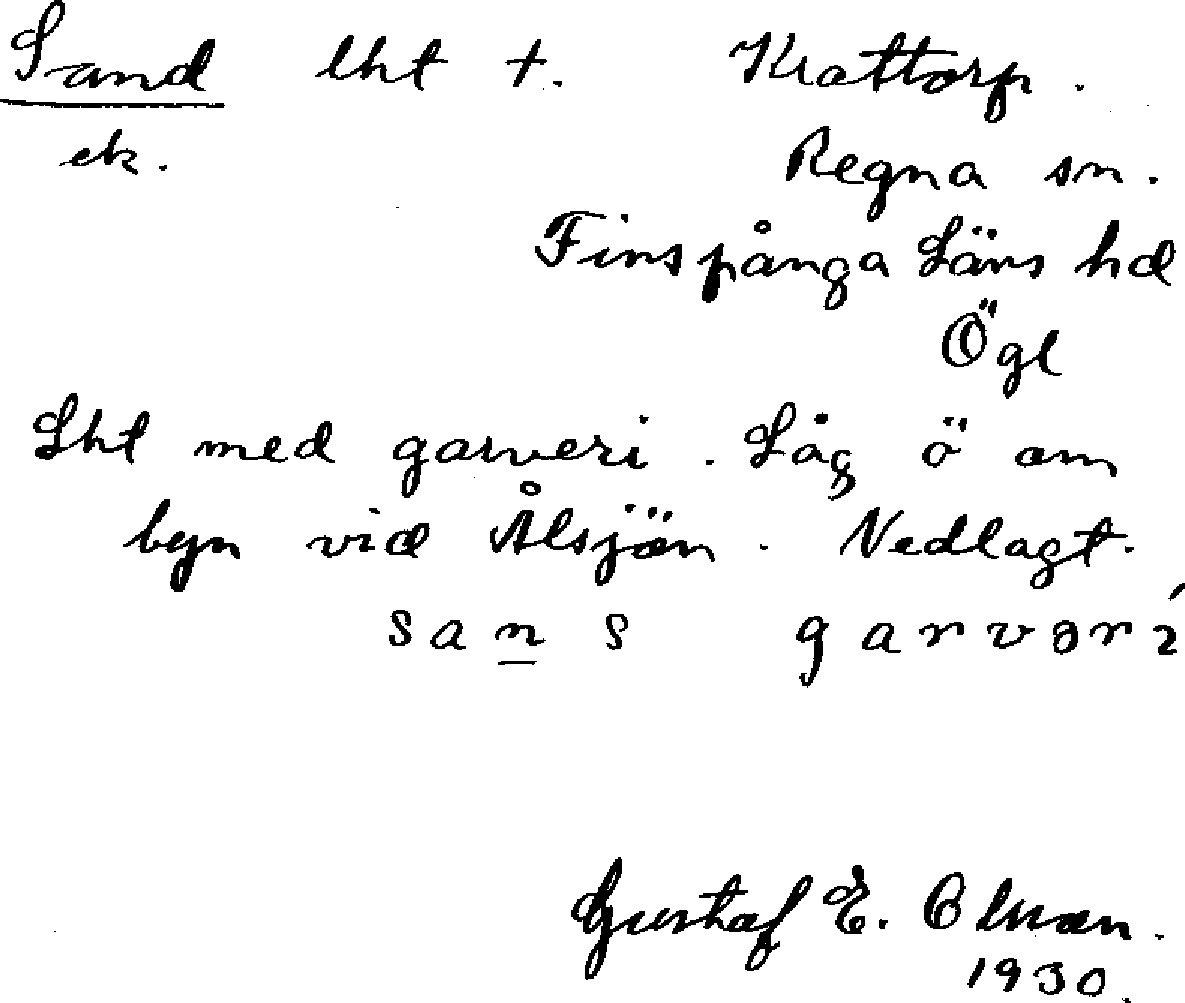 Sand lht t. Krattorp.
ek. Regna sn.
Finspånga Läns hd
Ögl
Lht med garveri. Låg ö om
byn vid Ålsjön. Nedlagt.
san s garvəri
Gustaf E. Olsson.
1930.